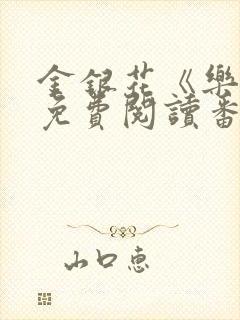 金銀花《樂
免費閱讀番
山口惠